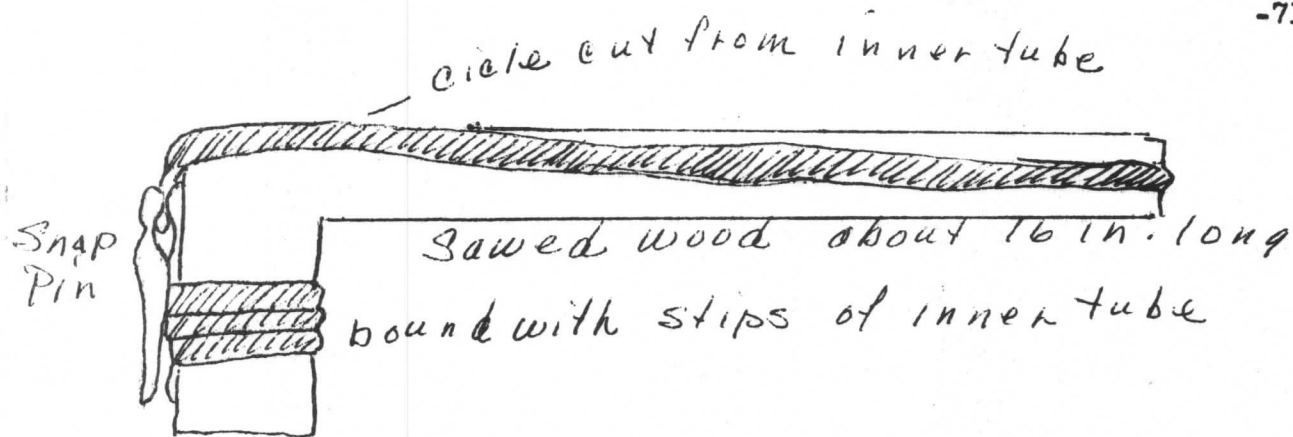 -7
cicle cut from inner tube
Snap
Pin
Sawed wood about 16 in. long
bound with stips of inner tube